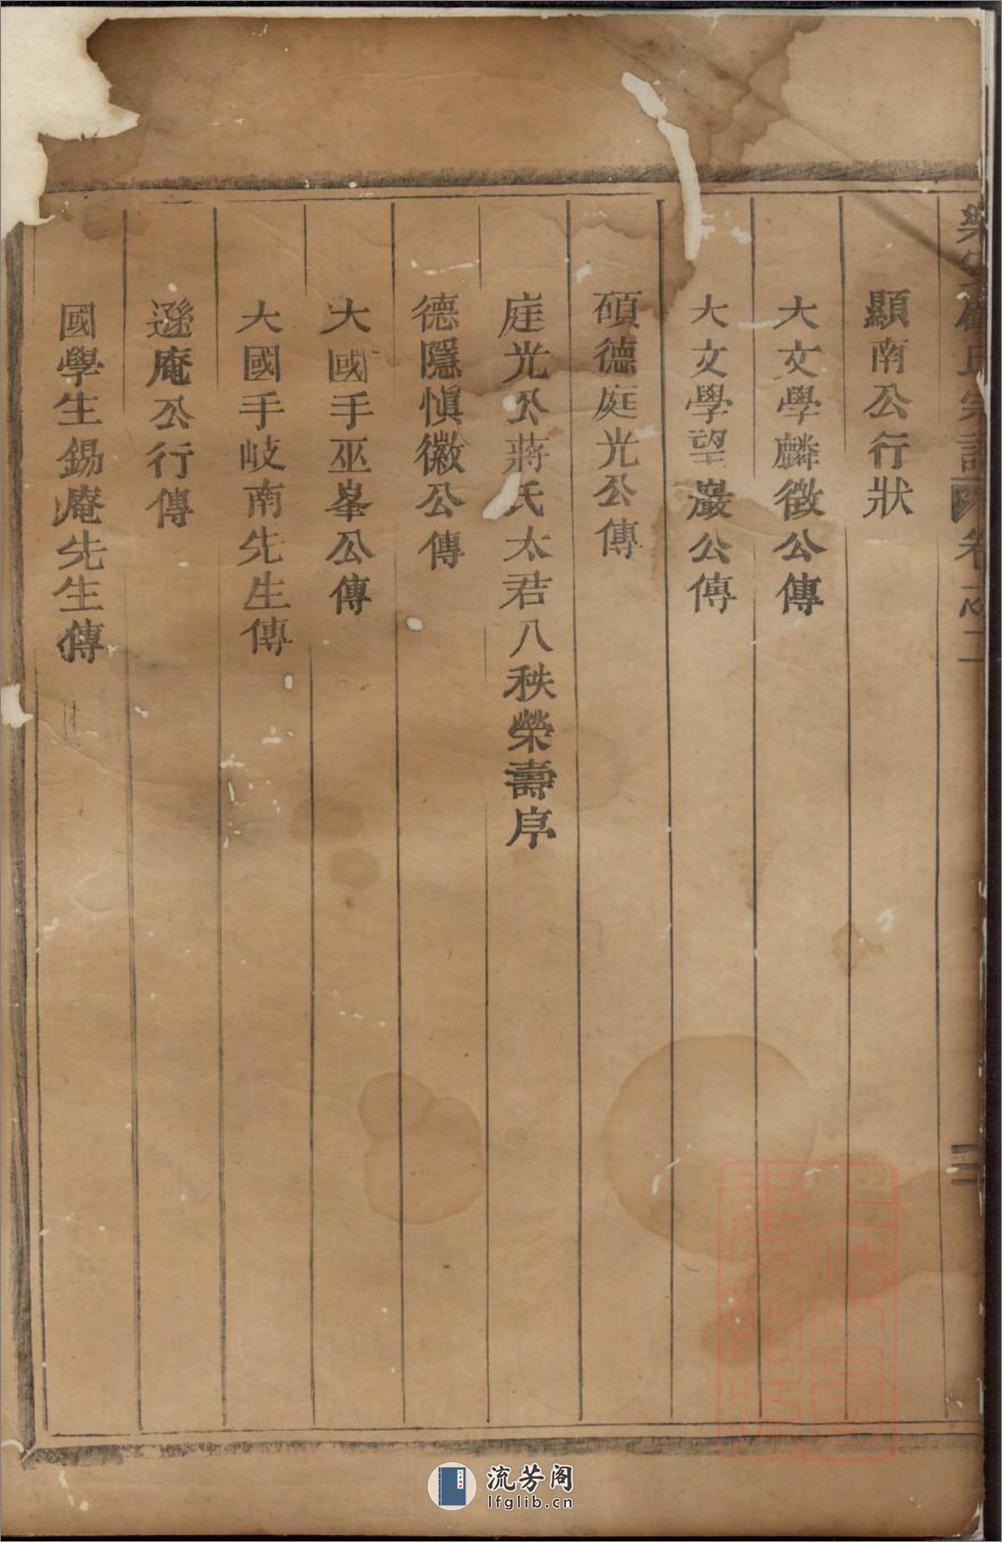 顯南公行狀
大文學麟徵公傳
大文學望巖公傳
碩德庭光公傳
庭光公蔣氏太君八秩榮壽序
德隱慎徽公傳
大國手巫峯公傳
大國手岐南先生傳
遜庵公行傳
國學生錫庵先生傳
流芳阁
lfglib.cn